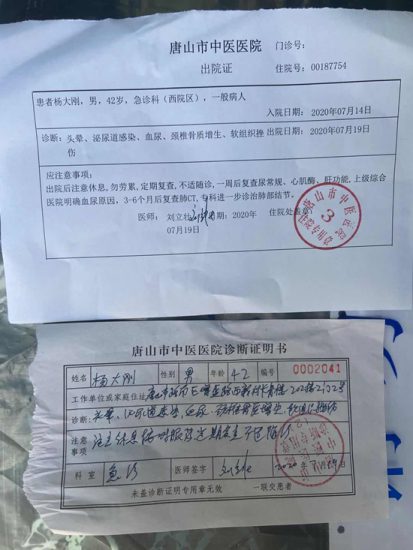 唐山市中医医院 门诊号:
出院证 住院号: 00187754
患者杨大刚, 男, 42岁, 急诊科 (西院区) , 一般病人
入院日期: 2020年07月14日
诊断: 头晕、泌尿道感染、血尿、颈椎骨质增生、软组织挫 出院日期: 2020年07月19日
伤
应注意事项:
出院后注意休息, 勿劳累, 定期复查, 不适随诊, 一周后复查尿常规、心肌酶、肝功能, 上级综合
医院明确血尿原因, 3-6个月后复查肺CT, 专科进一步诊治肺部结节。
医师: 刘立 期: 2020年 住院处盖章
07月19日
唐山市中医医院
3
唐山市中医医院诊断证明书
姓名 杨大刚 性别 男 年龄 42 编号 0002041
工作单位或家庭住址 唐山市路南区 202楼2门
诊断: 头晕、泌尿道感染、血尿、颈椎骨质增生、软组织挫伤
注意事项 注意休息 定期复查 不适随诊
科室 急诊 医师签字 2020年7月19日
未盖诊断证明专用章无效 一联交患者